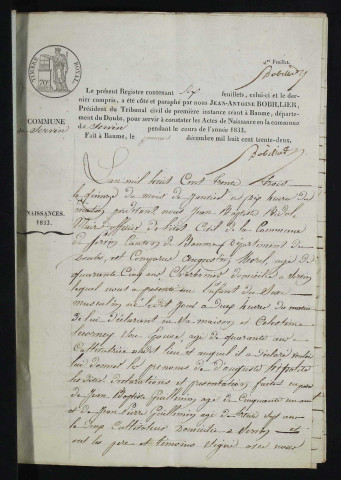 1er Feuillet
TIMBRE ROYAL
Le présent Registre contenant six feuillets, celui-ci et le der-
nier compris, a été coté et paraphé par nous JEAN-ANTOINE BOBILLIER,
Président du Tribunal civil de première instance séant à Baume, départe-
ment du Doubs, pour servir à constater les Actes de Naissance en la commune
de Servin pendant le cours de l'année 1833.
Fait à Baume, le premier décembre mil huit cent trente-deux.
Bobillier
COMMUNE
de Servin
NAISSANCES.
1833.
L'an mil huit Cent trente trois
le quinze du mois de Janvier a dix heures du
matin pardevant nous Jean Baptiste
Maire officier de l'état Civil de la Commune
de Servin Canton de Baume département du
Doubs, est Comparu Augustin Morel age de
quarante Cinq ans domicilié a Servin
lequel nous a présenté un Enfant du Sexe
masculin né ledit jour a deux heures du matin
de lui déclarant en Sa maison et Celestine
Son Epouse, age de quarante ans
Cultivatrice audit lieu et auquel il a déclaré vouloir
lui donner les prénoms de
les dites déclarations et présentation faites en présence
de Jean Baptiste Guillemin age de Cinquante un ans
et de Jean Pierre Guillemin age de
cultivateurs domiciliés a Servin
ont les père et témoins signé avec nous